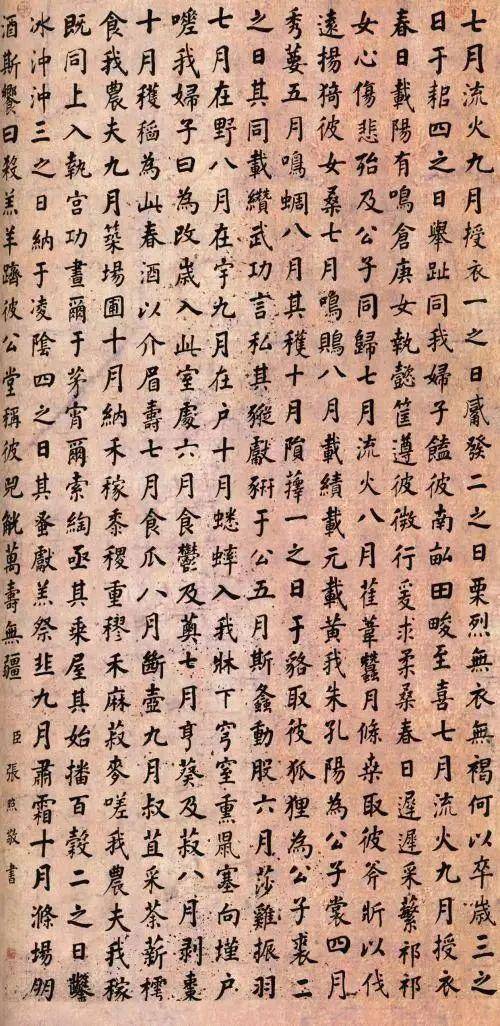 七月流火九月授衣一之日觱發二之日栗烈無衣無褐何以卒歲三之
日于耜四之日舉趾同我婦子饁彼南畝田畯至喜七月流火九月授衣
春日載陽有鳴倉庚女執懿筐遵彼微行爰求柔桑春日遲遲采蘩祁祁
女心傷悲殆及公子同歸七月流火八月萑葦蠶月條桑取彼斧斨以伐
遠揚猗彼女桑七月鳴鵙八月載績載元載黃我朱孔陽為公子裳四月
秀葽五月鳴蜩八月其穫十月隕蘀一之日于貉取彼狐狸為公子裘二
之日其同載纘武功言私其豵獻豜于公五月斯螽動股六月莎雞振羽
七月在野八月在宇九月在戶十月蟋蟀入我牀下穹窒熏鼠塞向墐戶
嗟我婦子曰為改歲入此室處六月食鬱及薁七月亨葵及菽八月剝棗
十月穫稻為此春酒以介眉壽七月食瓜八月斷壺九月叔苴采荼薪樗
食我農夫九月築場圃十月納禾稼黍稷重穋禾麻菽麥嗟我農夫我稼
既同上入執宮功晝爾于茅宵爾索綯亟其乘屋其始播百穀二之日鑿
冰沖沖三之日納于凌陰四之日其蚤獻羔祭韭九月肅霜十月滌場朋
酒斯饗曰殺羔羊躋彼公堂稱彼兕觥萬壽無疆 臣張照敬書